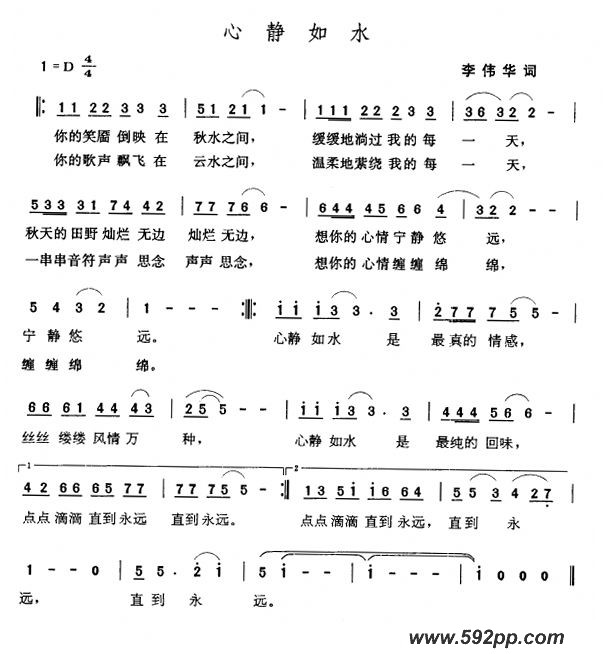 心 静 如 水
1=D 4/4
李 伟 华 词
‖: 11 22 33 3 | 51 21 1 - | 111 22 23 3 | 36 32 2 - |
你的笑靥 倒映 在 秋水之间， 缓缓地淌过 我的 每 一 天，
你的歌声 飘飞 在 云水之间， 温柔地萦绕 我的 每 一 天，
533 31 74 42 | 77 77 76 6 - | 644 45 66 4 | 32 2 - |
秋天的 田野 灿烂 无边 灿烂 无边， 想你的 心情 宁静 悠 远，
一串串 音符 声声 思念 声声 思念， 想你的 心情 缠缠 绵 绵，
5 4 3 2 | 1 - - - :‖: i i i3 3 . 3 | 277 75 5 - |
宁 静 悠 远。 心静 如水 是 最真的 情感，
缠 缠 绵 绵。
66 61 44 43 | 25 5 - | i i i3 3 . 3 | 444 56 6 - |
丝丝 缕缕 风情 万 种， 心静 如水 是 最纯的 回味，
1 42 66 65 77 | 77 75 5 - :‖ 2 13 5i i6 64 | 55 3 4 27 |
点点 滴滴 直到 永远 直到 永远。 点点 滴滴 直到 永远， 直到 永
1 - - 0 | 55 . 2 i | 5 i - - | i - - - | i 0 0 0 ‖
远， 直到 永 远。
www.592pp.com